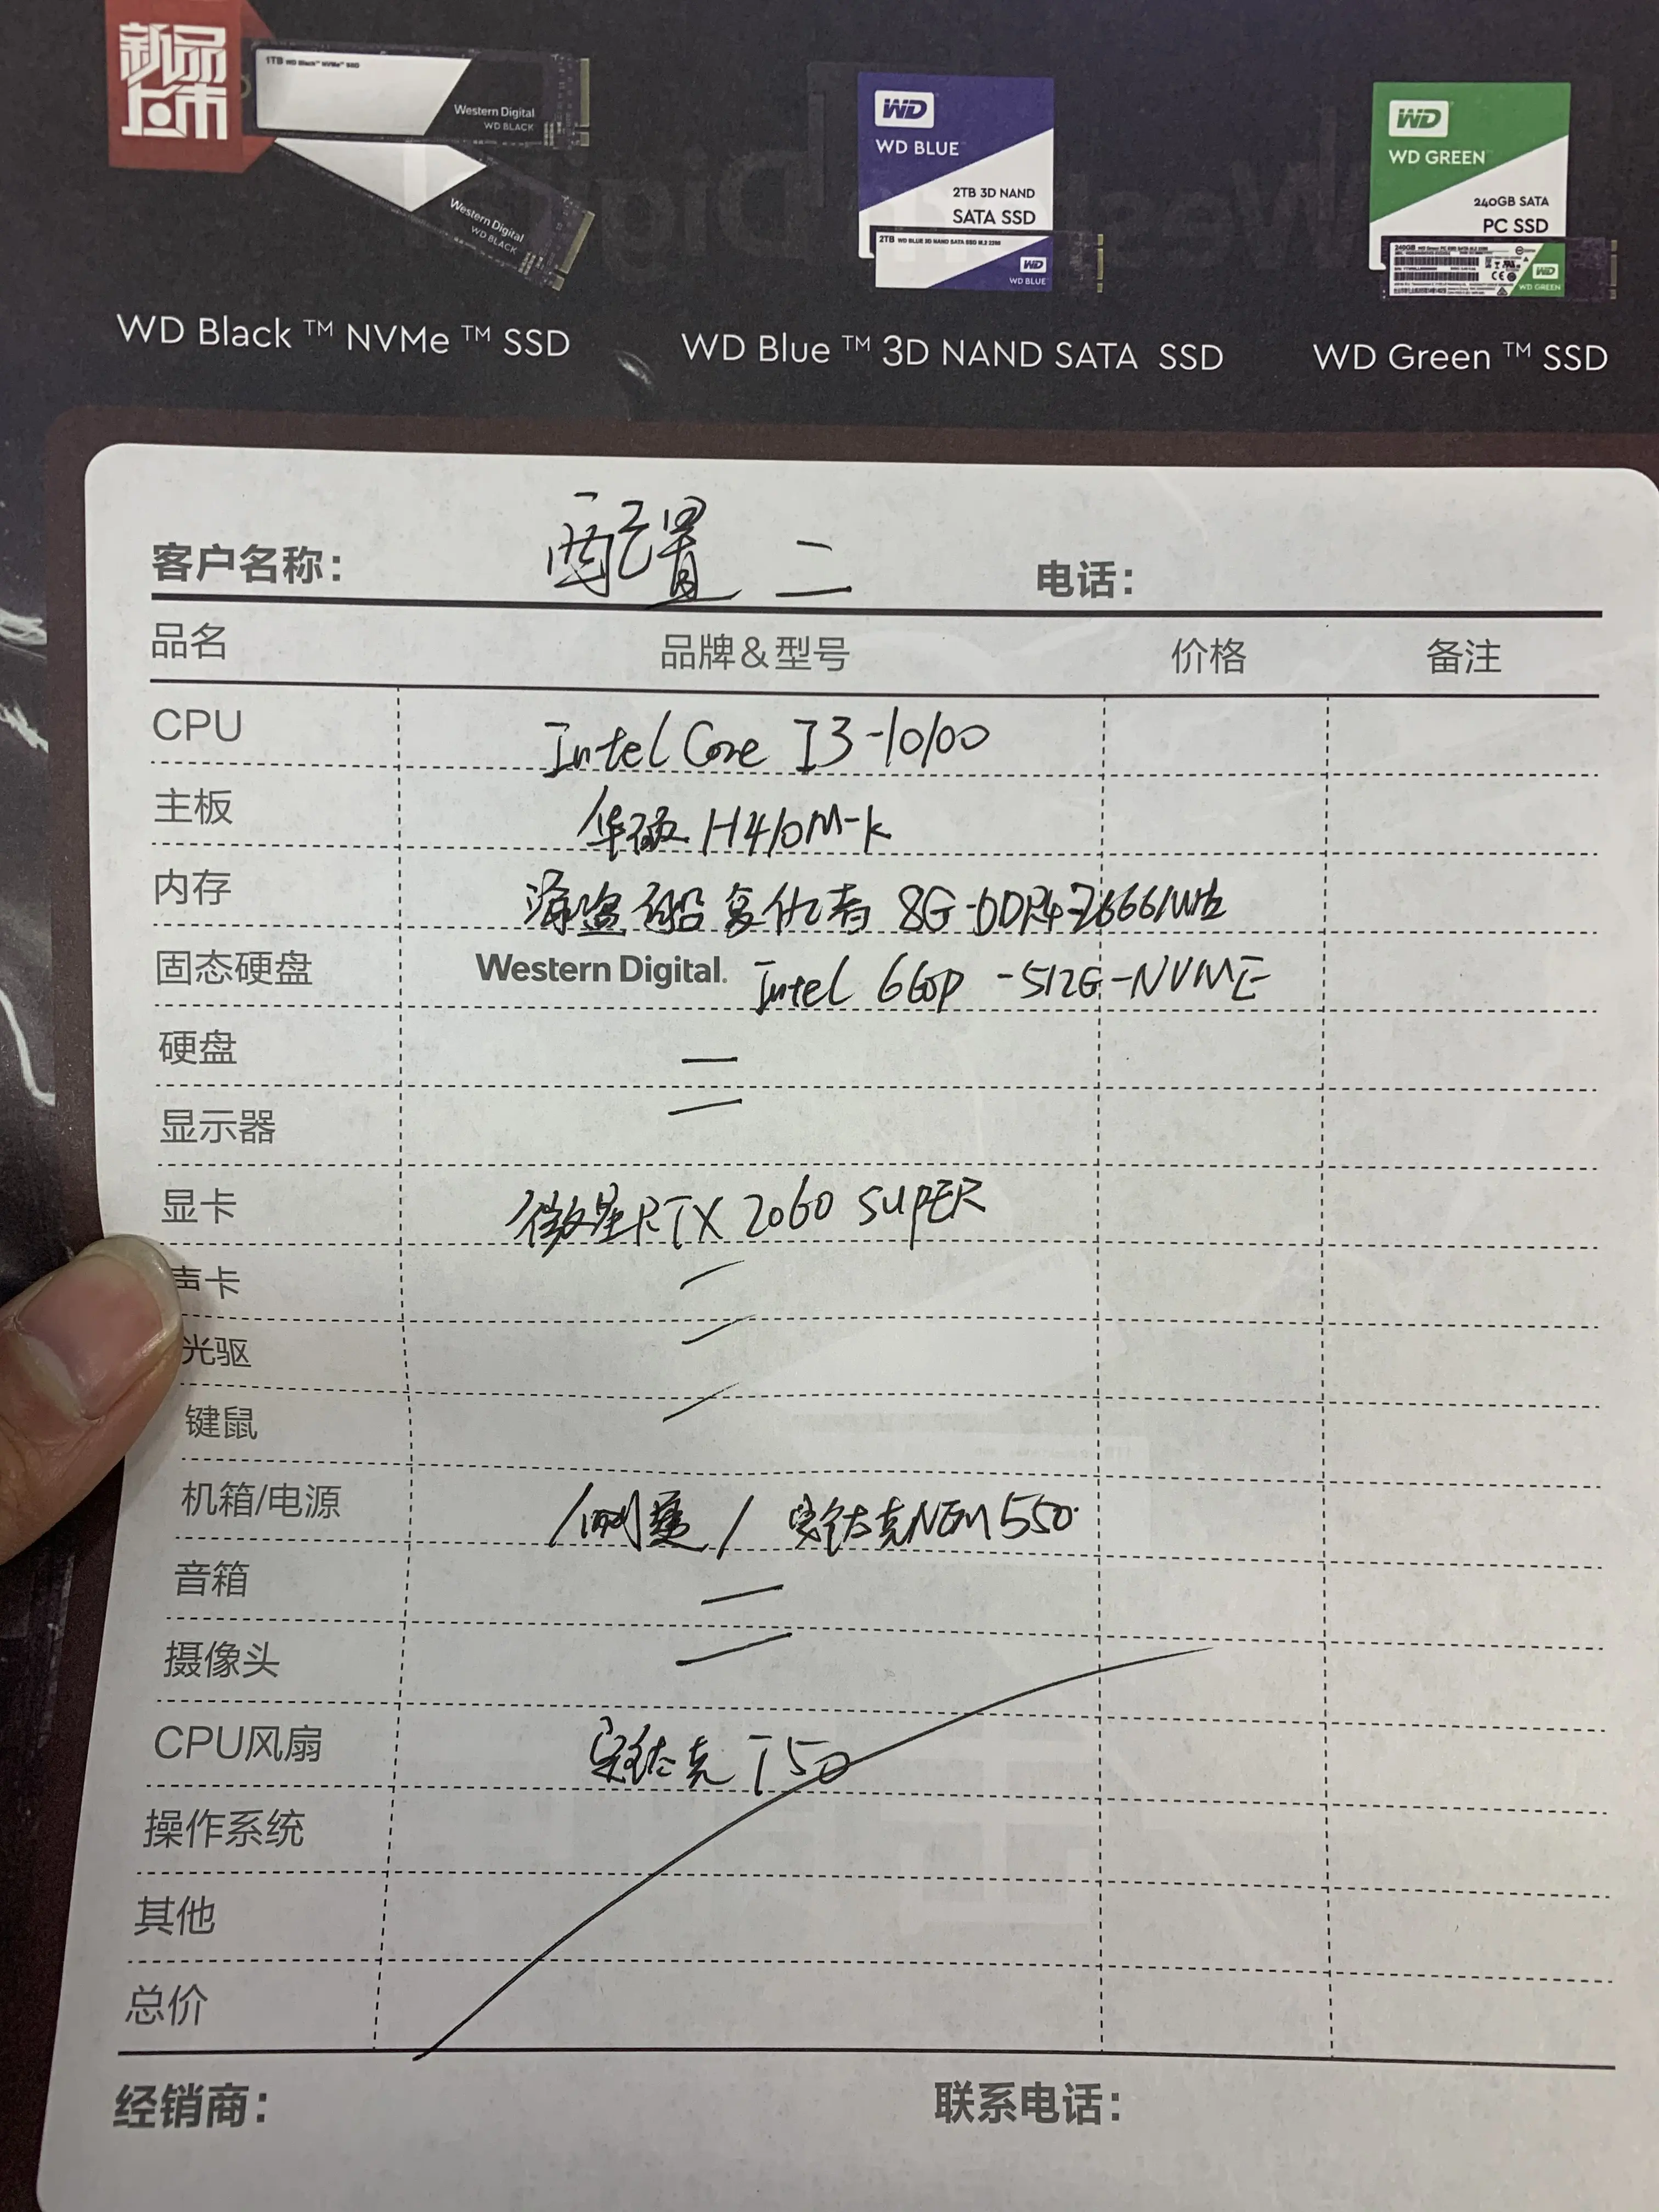 新品
上市
1TB WD Black™ NVMe™ SSD
Western Digital
WD BLACK
Western Digital
WD BLACK
WD
WD BLUE™
2TB 3D NAND
SATA SSD
2TB WD BLUE 3D NAND SATA SSD M.2 2280
WD
WD BLUE
WD
WD GREEN™
240GB SATA
PC SSD
240GB WD Green PC SSD SATA M.2 2280
WD
WD GREEN
WD Black™ NVMe™ SSD
WD Blue™ 3D NAND SATA SSD
WD Green™ SSD
客户名称: 配置二 电话:
品名 品牌&型号 价格 备注
CPU Intel Core I3-10100
主板 华硕 H410M-K
内存 海盗船 复仇者 8G-DDR4-2666MHz
固态硬盘 Western Digital. Intel 660p -512G-NVME
硬盘 —
显示器 —
显卡 微星RTX 2060 SUPER
声卡 —
光驱 —
键鼠 —
机箱/电源 侧透 / 安钛克NEM550
音箱 —
摄像头 —
CPU风扇 安钛克 T50
操作系统
其他
总价
经销商: 联系电话: